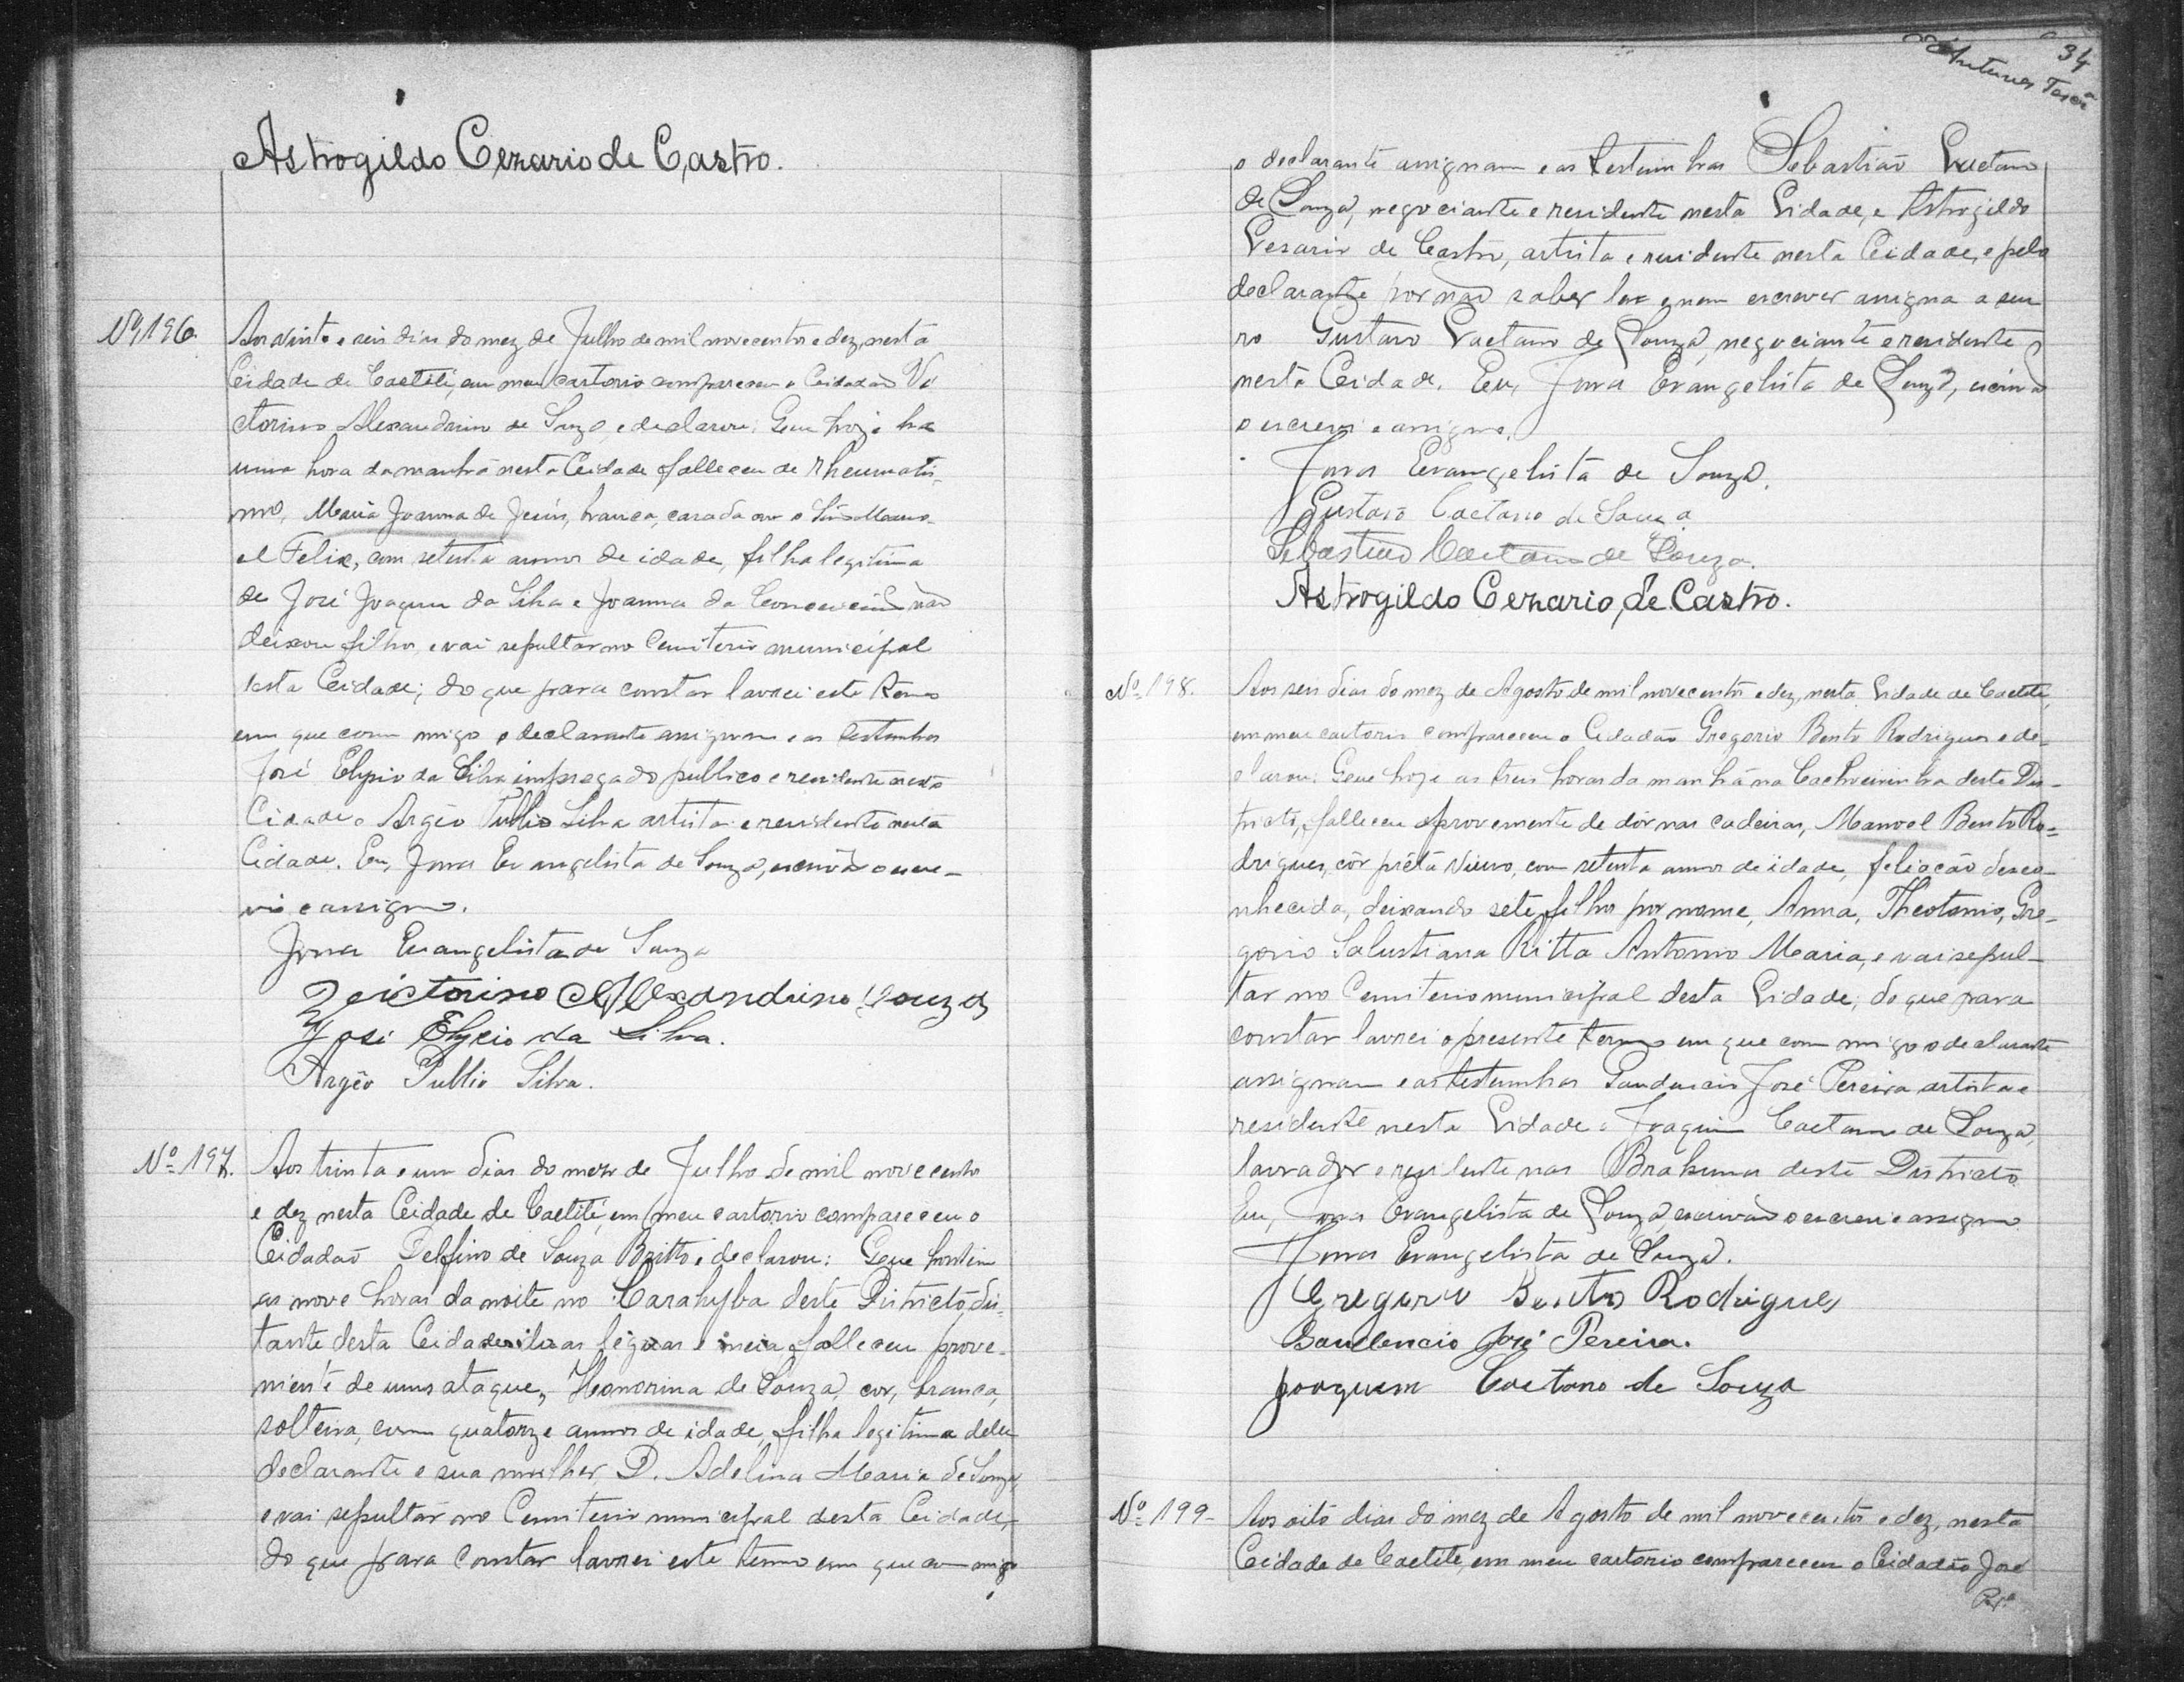 Astrogildo Cezario de Castro.
Nº 196. Aos vinte e seis dias do mez de Julho de mil novecentos e dez, nesta
Cidade de Caetité, em meu cartorio compareceu o Cidadão Vi
ctorino Alexandrino de Souza, e declarou: Que hoje ha
uma hora da manhã nesta Cidade falleceu de Rheumatis-
mo, Maria Joanna de Jesus, branca, casada com o Manu-
el Felix, com setenta annos de idade, filha legitima
de José Joaquim da Silva e Joanna da Conceição, não
deixou filho, e vai sepultar no Cemiterio municipal
desta Cidade; do que para constar lavrei este termo
em que com migo o declarante assignam e as testunhas
José Elpio da Silva, impregado publico e residente nesta
Cidade e Argêo Publio Silva artista e residente nesta
Cidade. Eu, Jonas Evangelista de Souza, escrivão o escre-
vi e assigno.
Jonas Evangelista de Souza
Veictorino Alexandrino Souza
José Elpio da Silva.
Argêo Publio Silva.
Nº 197. Aos trinta e um dias do mez de Julho de mil novecento
e dez nesta Cidade de Caetité, em meu cartorio compareceu o
Cidadão Delfino de Souza Britto e declarou: Que hontem
as nove horas da noite no Carahyba deste Districto, dis-
tante desta Cidade leguas e meia falleceu prove-
niente de uns ataque, Honorina de Souza, cor, branca,
solteira, com quatorze annos de idade, filha legitima delle
declarante e sua mulher D. Adelina Maria de Souza,
e vai sepultar no Cemiterio municipal desta Cidade,
do que para constar lavrei este termo em que com migo
34
Antunes
o declarante assignam e as testuinhas Sebastião Caetano
de Souza, negociante e residente nesta Cidade, e Astrogildo
Cesario de Castro, artista e residente nesta Cidade, e pelo
declarante por não saber ler e nem escrever assigna a seu
ro Gustavo Caetano de Souza, negociante e residente
nesta Cidade. Eu, Jonas Evangelista de Souza, escrivão
o escrevi e assigno.
Jonas Evangelista de Souza.
Gustavo Caetano de Souza
Sebastião Caetano de Souza.
Astrogildo Cezario de Castro.
Nº 198. Aos seis dias do mez de Agosto de mil novecentos e dez, nesta Cidade de Caetité,
em meu cartorio compareceu o Cidadão Gregorio Bento Rodrigues e de-
clarou: Que hoje as tres horas da manhã na Cachoeirinha deste Dis-
tricto, falleceu provemente de dôr nas cadeiras, Manoel Bento Ro-
drigues, côr prêta viuvo, com setenta annos de idade, feliação desco-
nhecida, deixando sete filhos por nome, Anna, Theotonio, Gre-
gorio Salustiana Ritta Antonio Maria, e vai sepul-
tar no Cemiterio municipal desta Cidade, do que para
constar lavrei o presente termo em que com migo o declarante
assignam e as testunhas Gaudencio José Pereira artista e
residente nesta Cidade e Joaquim Caetano de Souza,
lavrador e residente nas Brahunas deste Districto.
Eu, Jonas Evangelista de Souza, escrivão o escrevi e assigno
Jonas Evangelista de Souza.
Gregorio Bento Rodrigues
Gaudencio José Pereira.
Joaquim Caetano de Souza
Nº 199- Aos oito dias do mez de Agosto de mil novecentos e dez, nesta
Cidade de Caetité, em meu cartorio compareceu o Cidadão José